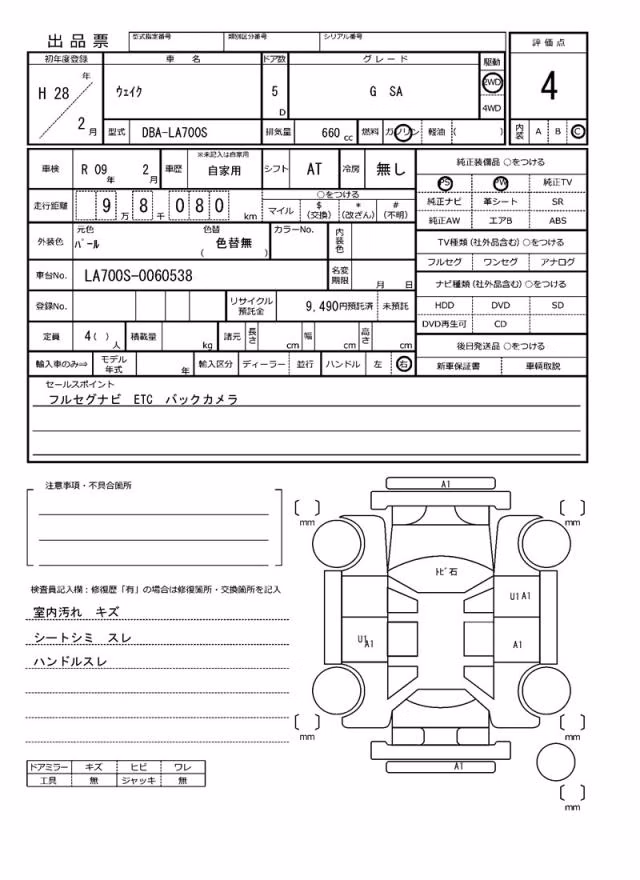 出品票 型式指定番号 類別区分番号 シリアル番号 評価点
初年度登録 車名 ドア数 グレード 駆動
H 28 年 ウェイク 5 D G SA 2WD 4
2 月 4WD
型式 DBA-LA700S 排気量 660 cc 燃料 ガソリン 軽油 ( ) 内装 A B C
車検 R 09 年 2 月 車歴 ※未記入は自家用 自家用 シフト AT 冷房 無し 純正装備品 ○をつける
PS PW 純正TV
走行距離 9 万 8 千 0 8 0 km ○をつける
マイル $ (交換) * (改ざん) # (不明)
純正ナビ 革シート SR
純正AW エアB ABS
外装色 元色 パール 色替 ( 色替無 ) カラーNo. 内装色
TV種類 (社外品含む) ○をつける
フルセグ ワンセグ アナログ
車台No. LA700S-0060538 名変期限 月 日
ナビ種類 (社外品含む) ○をつける
登録No. リサイクル預託金 9,490円預託済 未預託
HDD DVD SD
DVD再生可 CD
定員 4( ) 人 積載量 kg 諸元 長さ cm 幅 cm 高さ cm
後日発送品 ○をつける
輸入車のみ⇒ モデル年式 年 輸入区分 ディーラー 並行 ハンドル 左 右
新車保証書 車輌取説
セールスポイント
フルセグナビ ETC バックカメラ
注意事項・不具合箇所
検査員記入欄:修復歴「有」の場合は修復箇所・交換箇所を記入
室内汚れ キズ
シートシミ スレ
ハンドルスレ
ドアミラー キズ ヒビ ワレ
工具 無 ジャッキ 無
A1
mm mm
トビ石
U1 A1
U1 A1
A1
mm mm
A1
mm